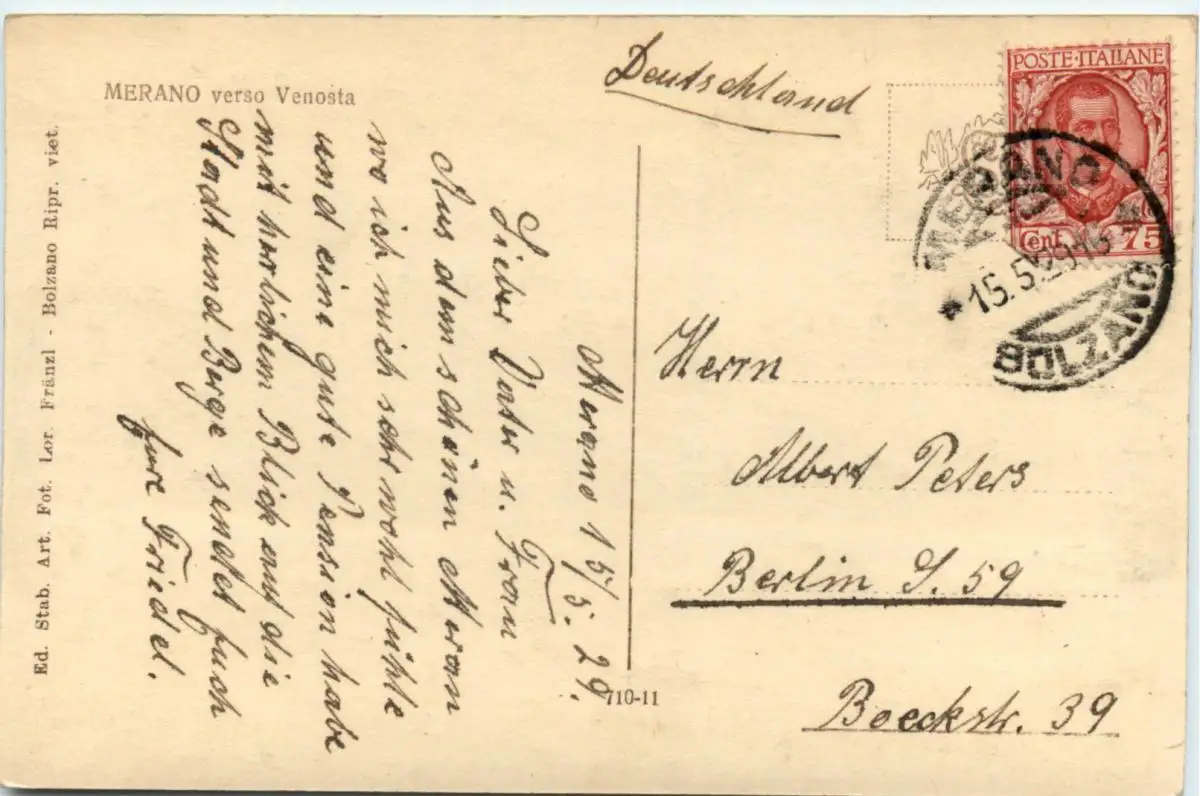 MERANO verso Venosta
Deutschland
POSTE·ITALIANE
Cent. 75
MERANO
15.5.29
BOLZANO
Merano 15/5. 29.
Lieber Vater u. Frau
Aus dem schönen Meran
wo ich mich sehr wohl fühle
und eine gute Pension habe
mit herlichem Blick auf die
Stadt und Berge sendet Euch
Eure Friedel.
Herrn
Albert Peters
Berlin S. 59
Boeckstr. 39
710-11
Ed. Stab. Art. Fot. Lor. Fränzl - Bolzano Ripr. viet.